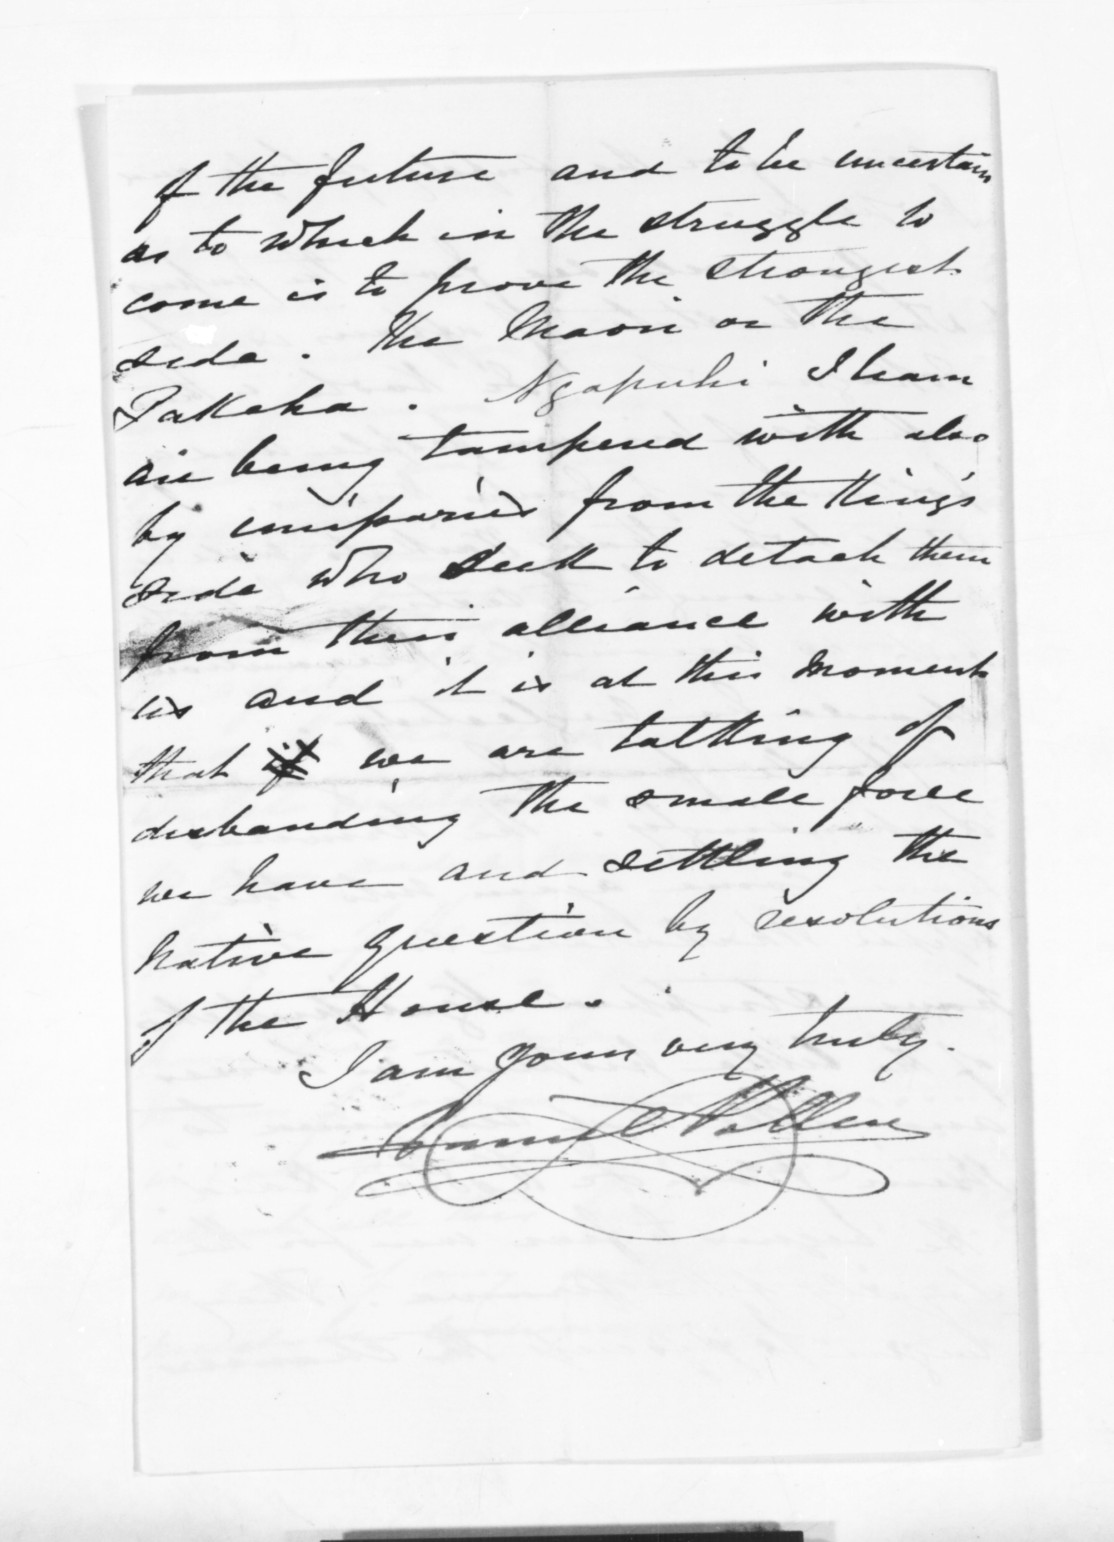 of the future and to be uncertain
as to which in the struggle to
come is to prove the strongest
side. The Maori or the
Pakeha. Ngapuhi I learn
are being tampered with also
by emissaries from the King's
side who seek to detach them
from their alliance with
us and it is at this moment
that if we are talking of
disbanding the small force
we have and settling the
native question by resolutions
of the House.
I am yours very truly.
Daniel Pollen